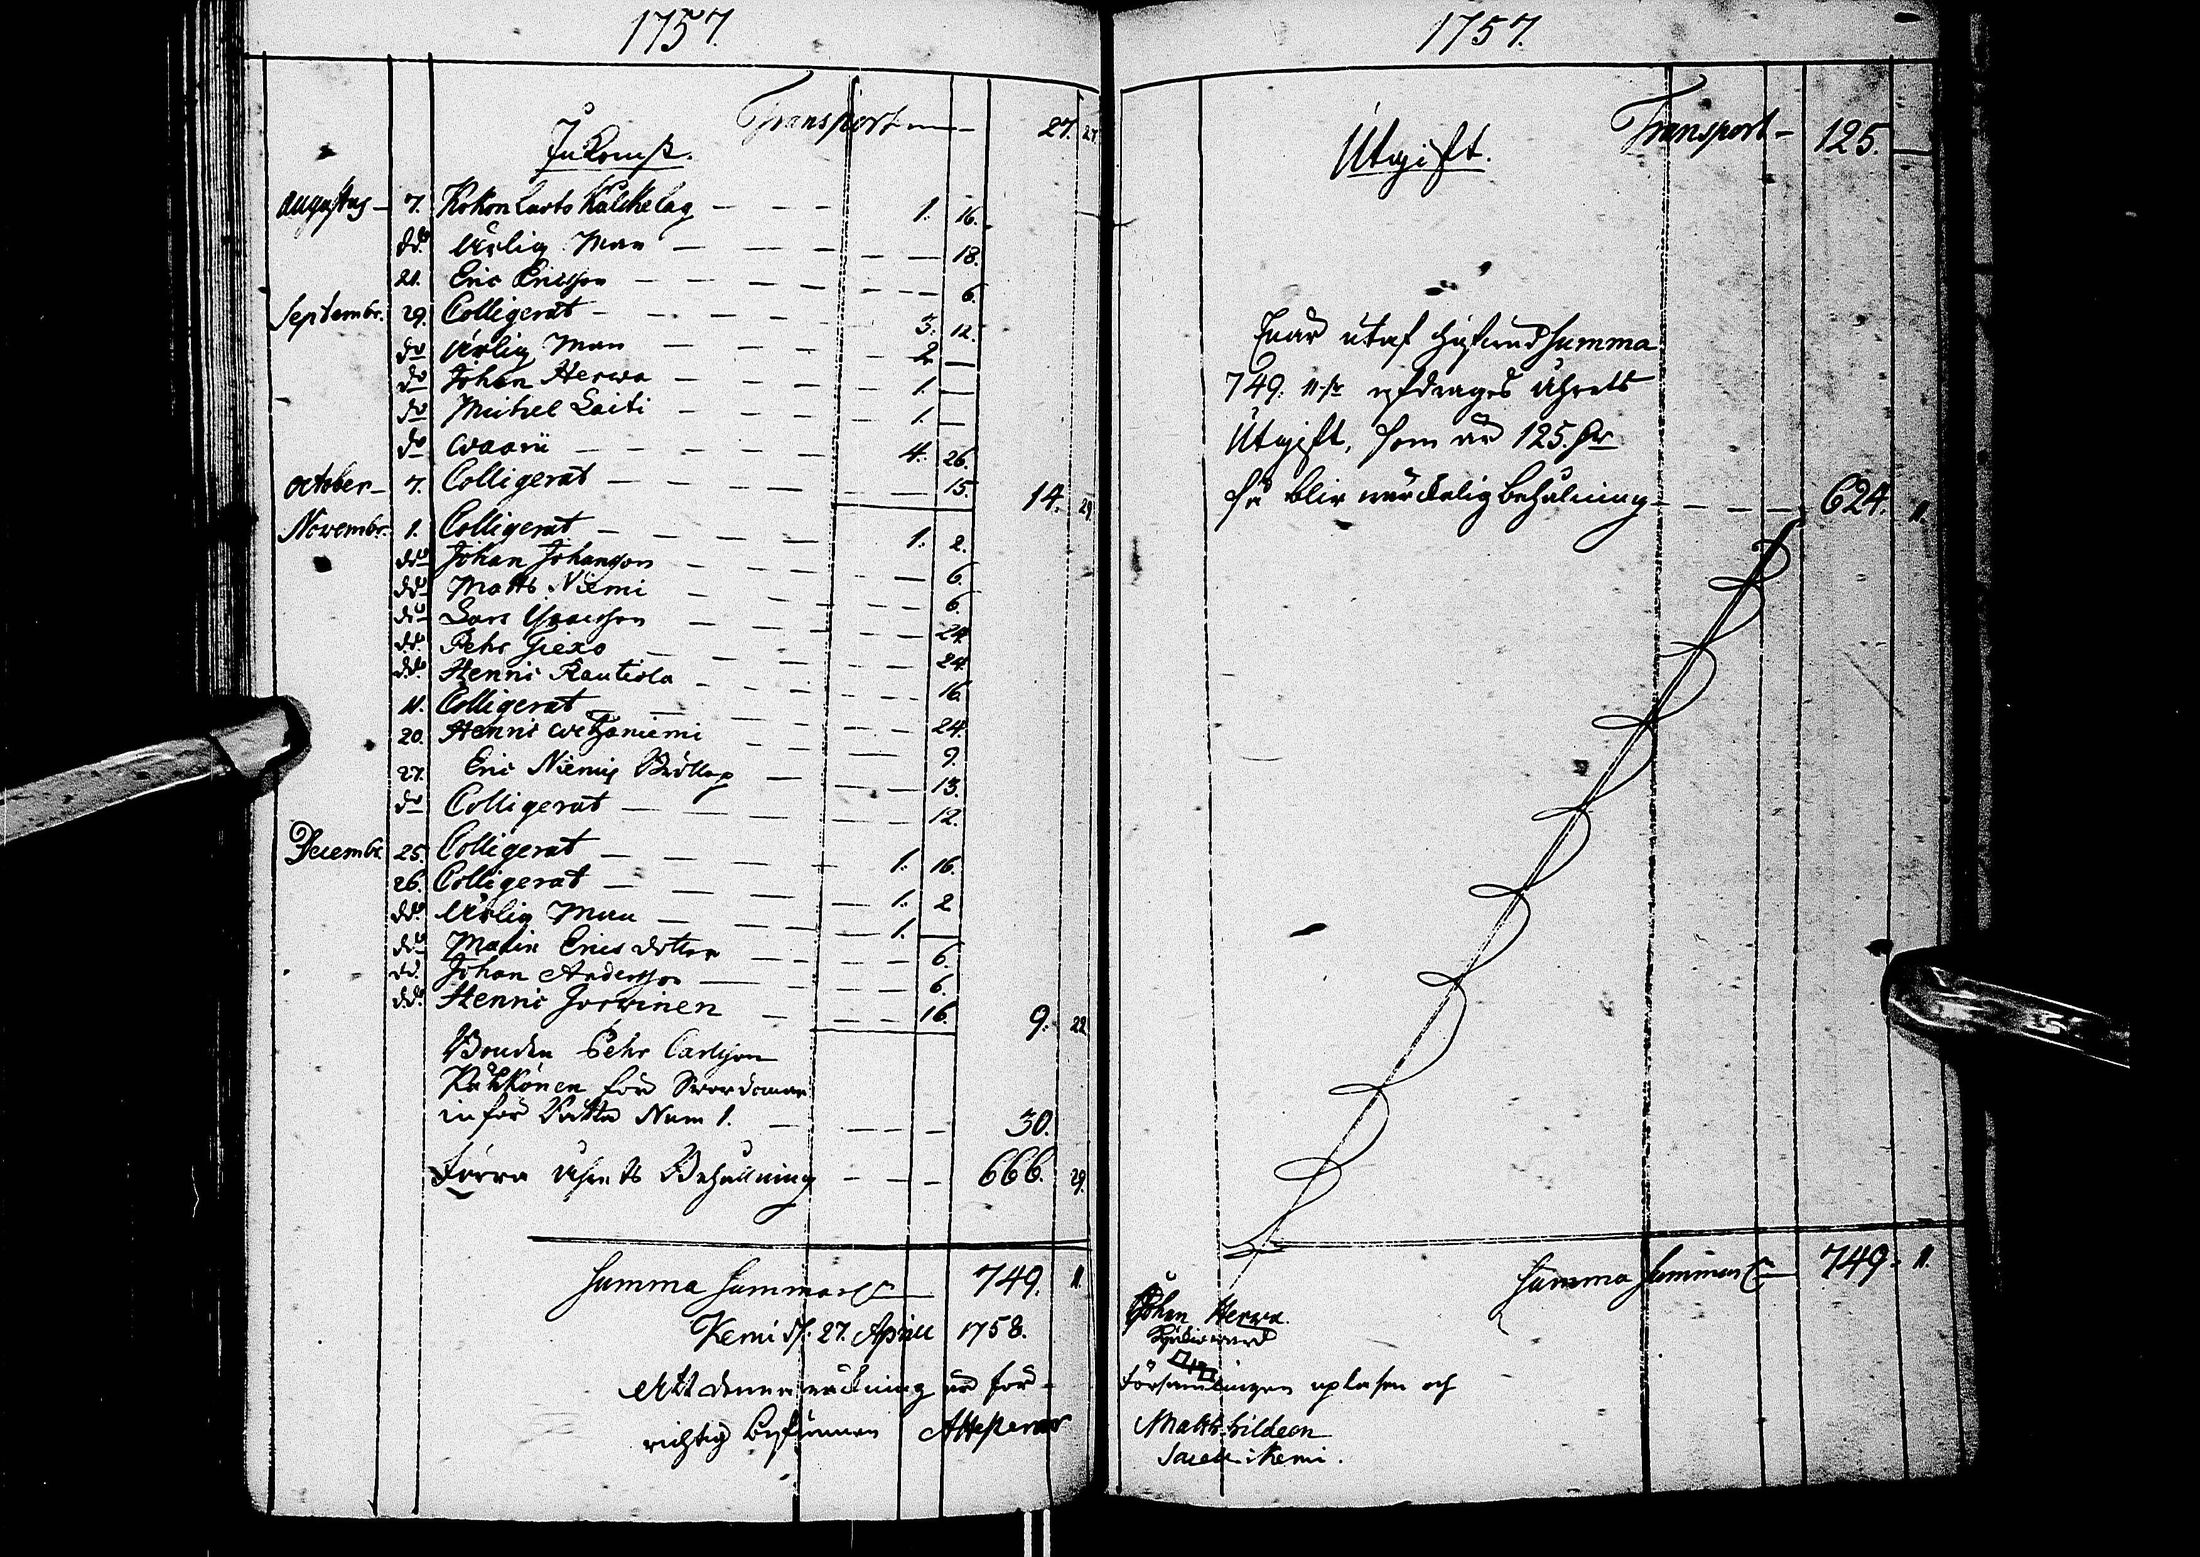 1757.
Transport 27. 27
Inkomst.
Augustus 7. Kokon Lasts Kalckelag 1. 16.
do Ärlig Man 18.
21. Eric Ericsson 6.
Septembr. 29. Colligerat 3. 12.
do Ärlig Man 2 —
do Johan Herwa 1. —
do Michel Laiti 1. —
do Waarii 4. 26.
October 7. Colligerat 15. 14. 29.
Novembr. 1. Colligerat 1. 2.
do Johan Johansson 6.
do Matts Niemi 6.
do Lars 24.
do Pehr Giexo 24.
do Hennic Rautiola 16.
11. Colligerat 24.
20. Hennic 9.
27. Eric Niemis Bröllop 13.
do Colligerat 12.
Decembr 25. Colligerat 1. 16.
26. Colligerat 1. 2
do Ärlig Man 1. —
do Malin Ericsdotter 6.
do Johan Andersson 6.
do Hennic Jorvinen 16. 9. 22
Bonden Pehr Carlsson
Kuhkonen för
Num 1. 30.
Förra Åhrets Behållning 666. 29.
Summa Summarum 749. 11.
Kemi d. 27. Aprill 1758.
Att denna räckning är för-
richtig befunnen Attesterar
1757.
Transport 125. —
Utgift.
Summa
749. afdrages Åhrets
Utgift, som är 125. Dr
så blir wärckelig behålning 624. 11.
Summa Summarum 749. 11.
Johan Herwa.
Kyrkiowärd
Församlingen uplesen och
Matts Hildeen
Sacell. i Kemi.